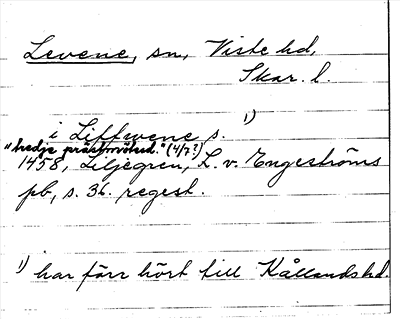 Levene, sn, Viste hd,
Skar. l.
i Liffwene s. 1)
"tredje prästmöted." (4/7?)
1458, Liljegren, L. v. Engeströms
pb, s. 36. regest.
1) har förr hört till Kållands hd